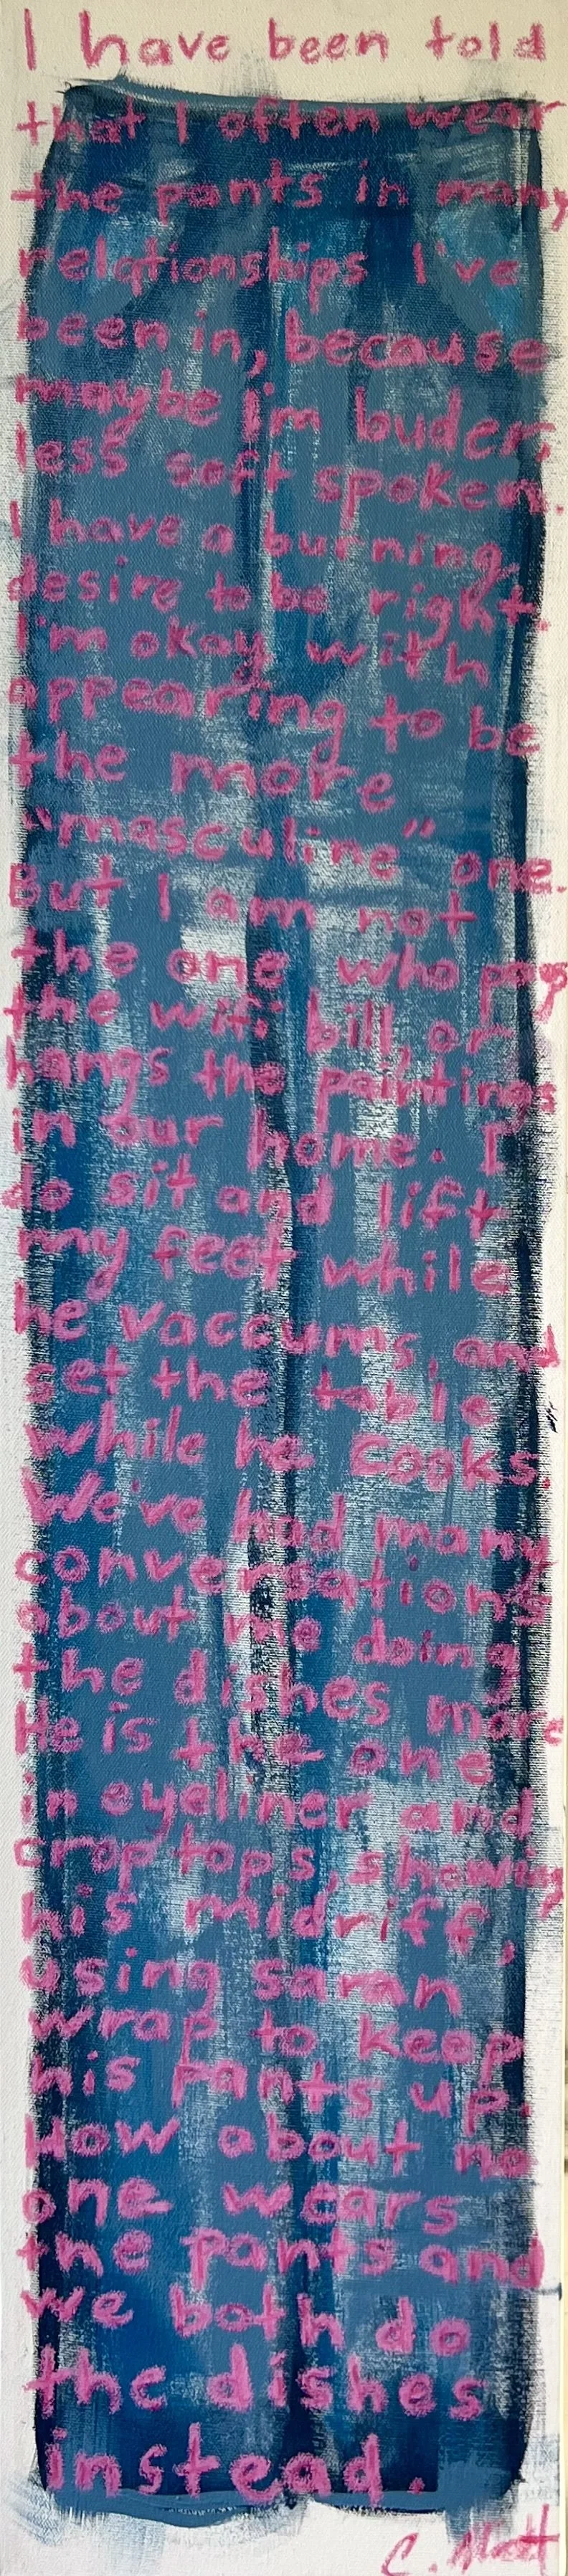 I have been told
that I often wear
the pants in many
relationships I've
been in, because
maybe I'm louder,
less soft spoken.
I have a burning
desire to be right.
I'm okay with
appearing to be
the more
"masculine" one.
But I am not
the one who pays
the wifi bill, or
hangs the paintings
in our home. I
do sit and lift
my feet while
he vacuums, and
set the table
while he cooks.
We've had many
conversations
about me doing
the dishes more
He is the one
in eyeliner and
crop tops, showing
his midriff,
using saran
wrap to keep
his pants up.
How about no
one wears
the pants and
we both do
the dishes
instead.
C. Mott